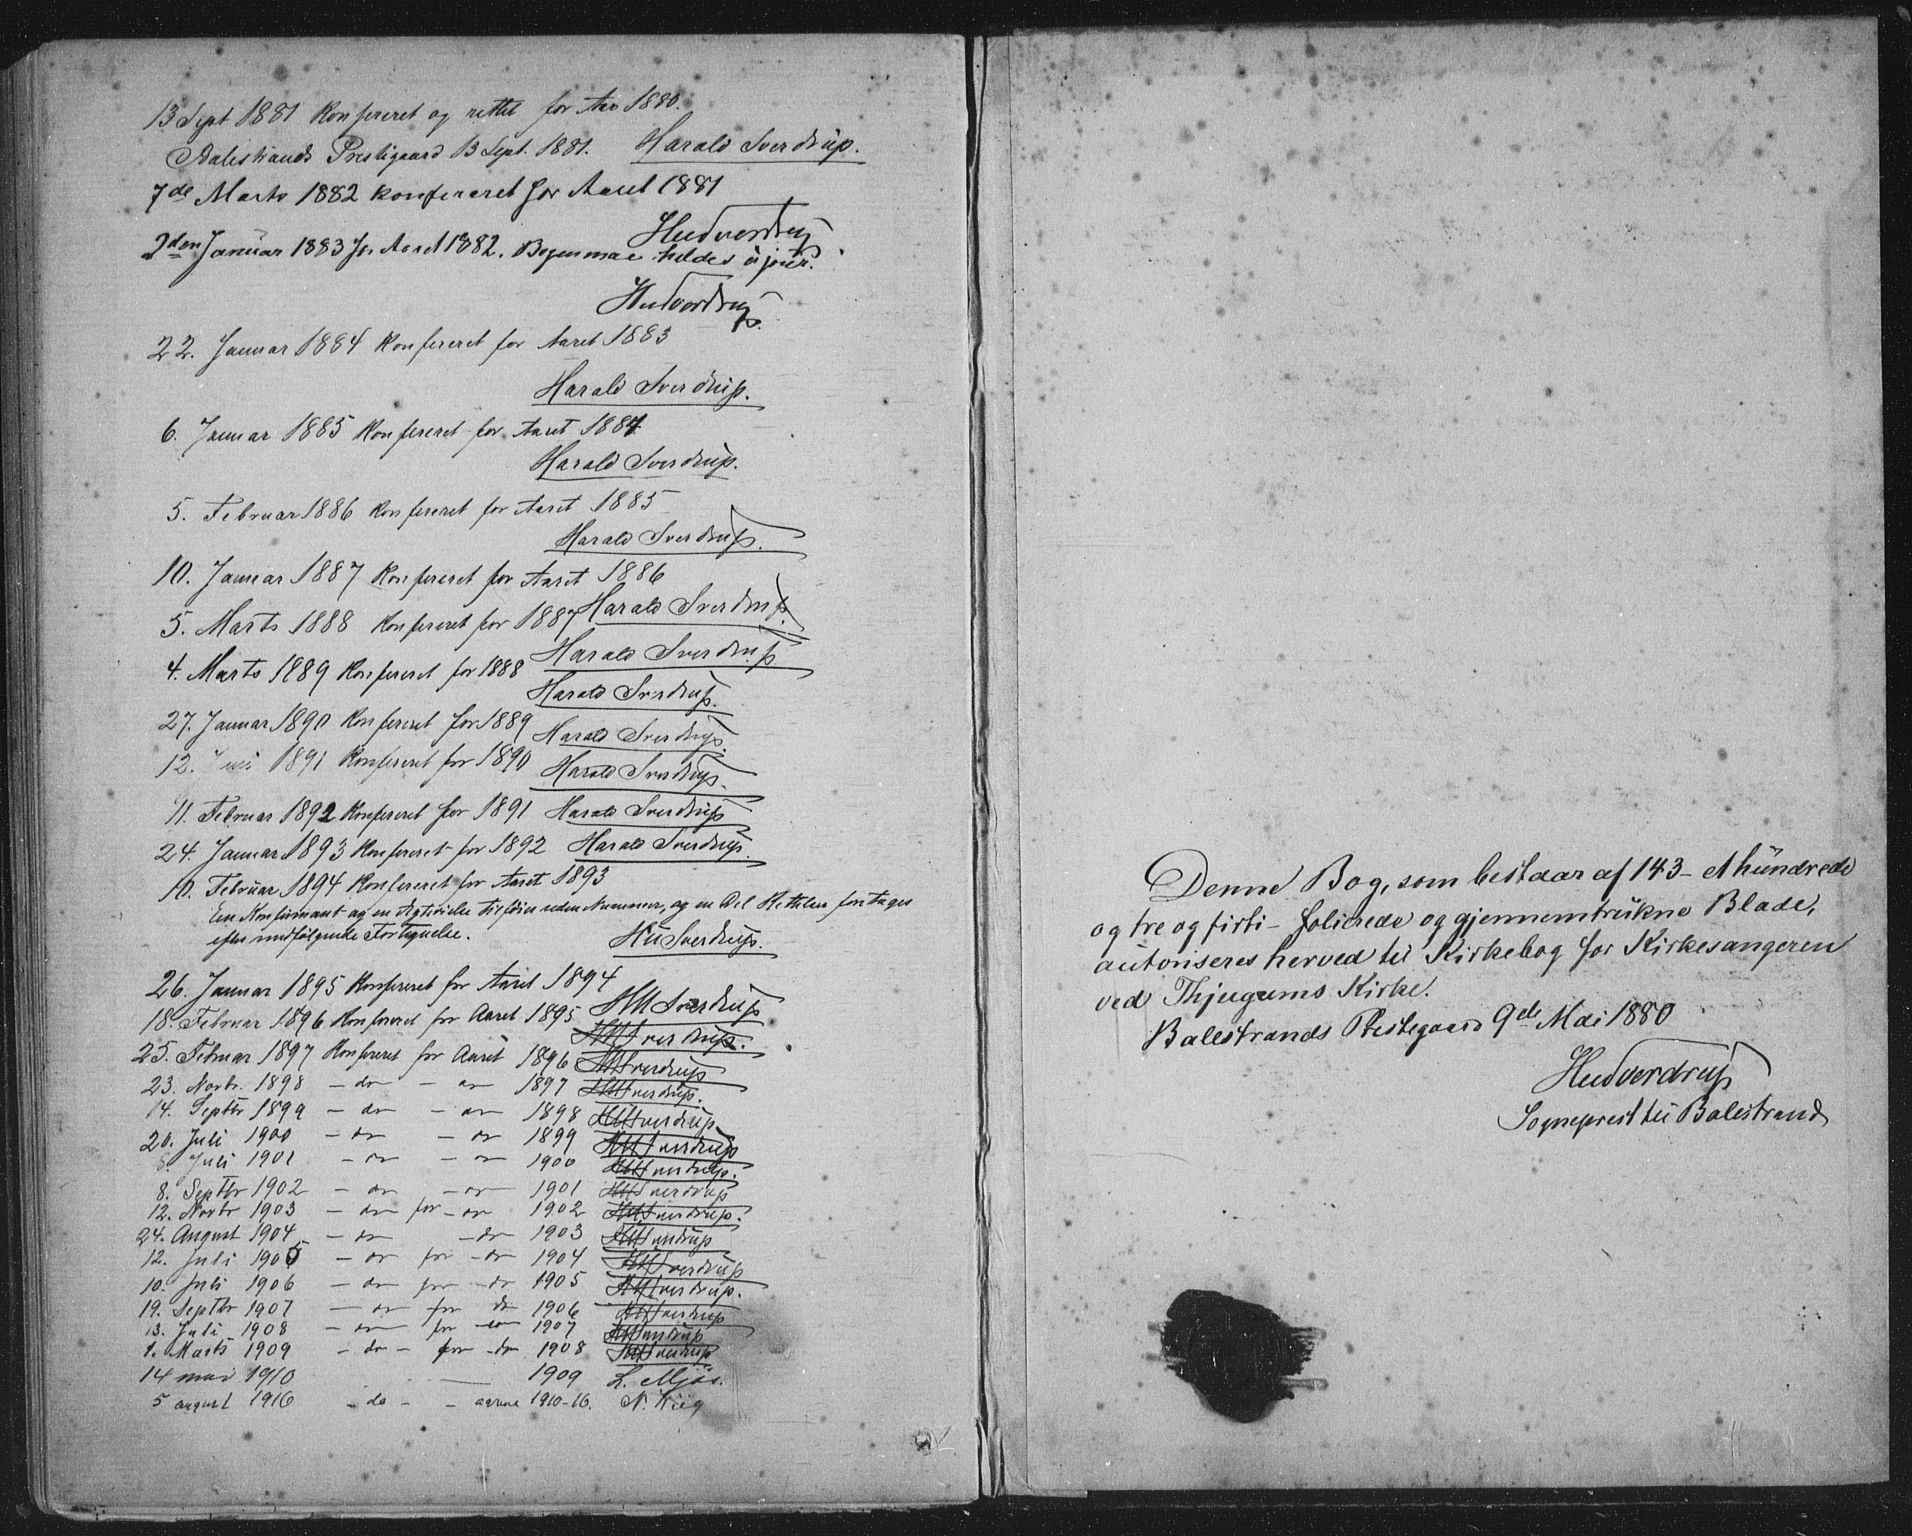 13 Sept 1881 Konfereret og rettet for Aar 1880.
Balestrands Prestegaard 13 Sept. 1881. Harald Sverdrup.
7de Marts 1882 konfereret for Aaret 1881
HUSverdrup
2den Januar 1883 for Aaret 1882. Bogen maa holdes ajour.
HUSverdrup.
22. Januar 1884 Konfereret for Aaret 1883
Harald Sverdrup.
6. Januar 1885 Konfereret for Aaret 1884
Harald Sverdrup.
5. Februar 1886 Konfereret for Aaret 1885
Harald Sverdrup.
10. Januar 1887 Konfereret for Aaret 1886
Harald Sverdrup.
5. Marts 1888 Konfereret for 1887
Harald Sverdrup
4. Marts 1889 Konfereret for 1888
Harald Sverdrup.
27. Januar 1890 Konfereret for 1889 Harald Sverdrup.
12. 1891 Konfereret for 1890 Harald Sverdrup.
11. Februar 1892 Konfereret for 1891 Harald Sverdrup
24. Januar 1893 Konfereret for 1892 Harald Sverdrup.
10. Februar 1894 Konfereret for Aaret 1893
En Konfirmant og en Ægtevielse tilføies uden Nummer, og en Del Rettelser foretages
efter medfølgende Fortegnelse. HUSverdrup.
26. Januar 1895 Konfereret for Aaret 1894
HUSverdrup
18. Februar 1896 Konfereret for Aaret 1895
HUSverdrup.
25. Februar 1897 Konfereret for Aaret 1896 HUSverdrup
23. Novbr. 1898 - do - do 1897 HUSverdrup.
14. Septbr 1899 - do - do 1898 HUSverdrup
20. Juli 1900 - do - do 1899 HUSverdrup
8. Juli 1901 - do - do 1900 HUSverdrup.
8. Septbr 1902 - do - do 1901 HUSverdrup
12. Novbr 1903 - do for - do 1902 HUSverdrup.
24. August 1904 - do - do 1903 HUSverdrup
12. Juli 1905 - do for - do 1904 HUSverdrup
10. Juli 1906 - do for do 1905 HUSverdrup.
19. Septbr 1907 - do for do 1906 HUSverdrup
13. Juli 1908 - do for do 1907 HUSverdrup
1. Marts 1909 - do - for - do 1908 HUSverdrup
14 mai 1910 1909 L. Mjøs.
5 august 1916 - do - - aarene 1910-16. N. Krig
Denne Bog, som bestaar af 143 - et hundrede
og tre og firti - folierede og gjennemtrukne Blade,
autoriseres herved til Kirkebog for Kirkesangeren
ved Thjugums Kirke.
Balestrands Prestegaard 9de Mai 1880
HUSverdrup
Sogneprest til Balestrand